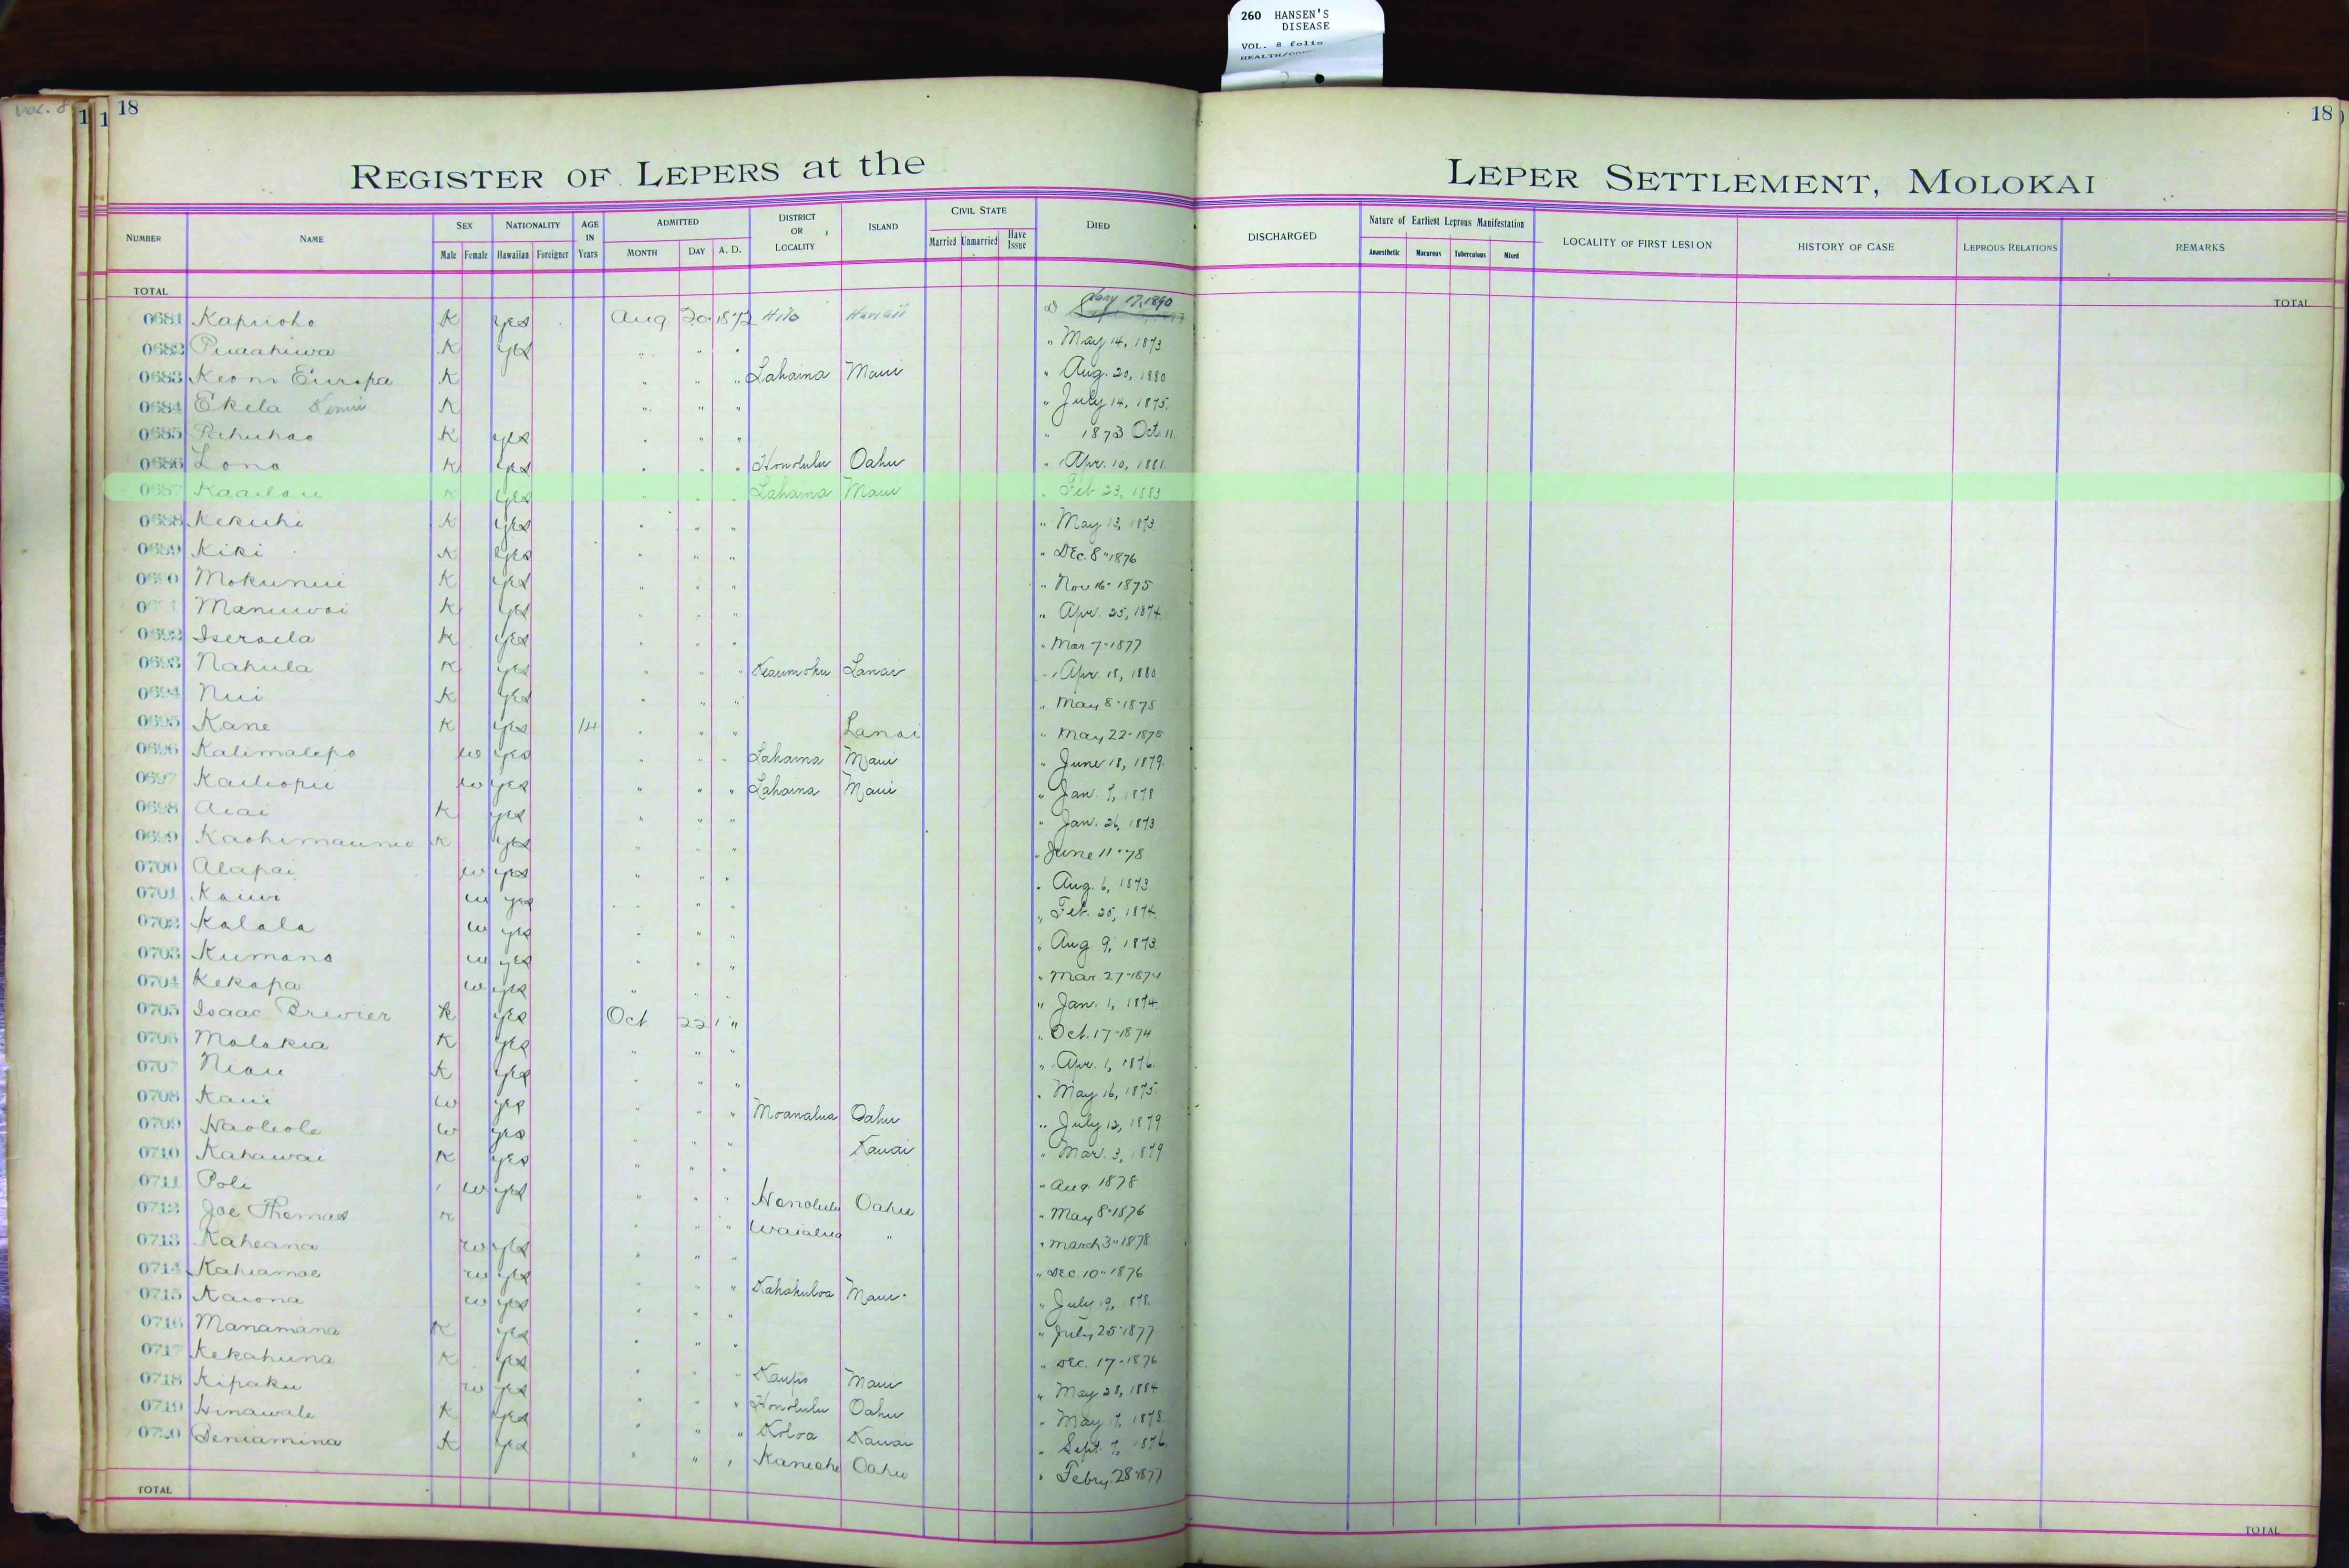 260 HANSEN'S
DISEASE
VOL. 8 folio
VOL. 8
1 1 18
18
REGISTER OF LEPERS at the LEPER SETTLEMENT, MOLOKAI
NUMBER NAME SEX Male Female NATIONALITY Hawaiian Foreigner AGE IN Years ADMITTED MONTH DAY A. D. DISTRICT OR LOCALITY ISLAND CIVIL STATE Married Unmarried Have Issue DIED DISCHARGED Nature of Earliest Leprous Manifestation Anaesthetic Macurous Tuberculous Mixed LOCALITY OF FIRST LESION HISTORY OF CASE LEPROUS RELATIONS REMARKS
TOTAL TOTAL
0681 Kapuoho K yes Aug 20 1872 Hilo Hawaii Jany 17, 1890
0682 Puaahiwa K yes " " " " May 14, 1873
0683 Keoni Europa K " " " Lahaina Maui " Aug. 20, 1880
0684 Ekela K " " " " July 14, 1875.
0685 Pahuhao K yes " " " " 1873 Oct. 11
0686 Lono K yes " " " Honolulu Oahu " Apr. 10, 1881.
0687 Kaailau K yes " " " Lahaina Maui " Feb 23, 1883
0688 Kekuhi K yes " " " " May 13, 1873
0689 Kiki K yes " " " " Dec. 8" 1876
0690 Mokunui K yes " " " " Nov 16- 1875
Manuwai K yes " " " " Apr. 25, 1874.
0692 Iseraela K yes " " " " Mar. 7" 1877
0693 Nahula K yes " " " Keaumoku Lanai " Apr. 18, 1880
0694 Nui K yes " " " " May 8" 1875
0695 Kane K yes 14 " " " Lanai " May 22- 1875
0696 Kalimalepo w yes " " " Lahaina Maui " June 18, 1879.
0697 Kailiopu w yes " " " Lahaina Maui " Jan. 7, 1878
0698 Aiai K yes " " " " Jan. 26, 1873
0699 K yes " " " " June 11" 78
0700 Alapai w yes " " " " Aug. 6, 1873
0701 Kauwi w yes " " " " Feb. 25, 1874.
0702 Kalala w yes " " " " Aug 9, 1873
0703 Kumano w yes " " " " Mar. 27" 1874
0704 Kekapa w yes " " " " Jan. 1, 1874.
0705 Isaac Brewier K yes Oct 22 " " Oct. 17" 1874
0706 Molokia K yes " " " " Apr. 1, 1876.
0707 Niau K yes " " " " May 16, 1875.
0708 Kaui w yes " " " Moanalua Oahu " July 12, 1879
0709 Haoleole w yes " " " Kauai " Mar. 3, 1879
0710 Kahawai K yes " " " " Aug 1878
0711 Poli w yes " " " Honolulu Oahu " May 8" 1876
0712 Joe Thomas K " " " Waialua " " March 3" 1878
0713 Kaheana w yes " " " " Dec. 10" 1876
0714 Kahiamoe w yes " " " Kahakuloa Maui " July 19, 1878.
0715 Kaiona w yes " " " " July 25" 1877
0716 Manamana K yes " " " " Dec. 17- 1876
0717 Kekahuna K yes " " " Kaupo Maui " May 28, 1884
0718 Kipaku w yes " " " Honolulu Oahu " May 17, 1878.
0719 Hinawale K yes " " " Koloa Kauai " Sept. 7, 1876.
0720 Beniamina K yes " " " Kaneohe Oahu " Febry. 28" 1877
TOTAL TOTAL